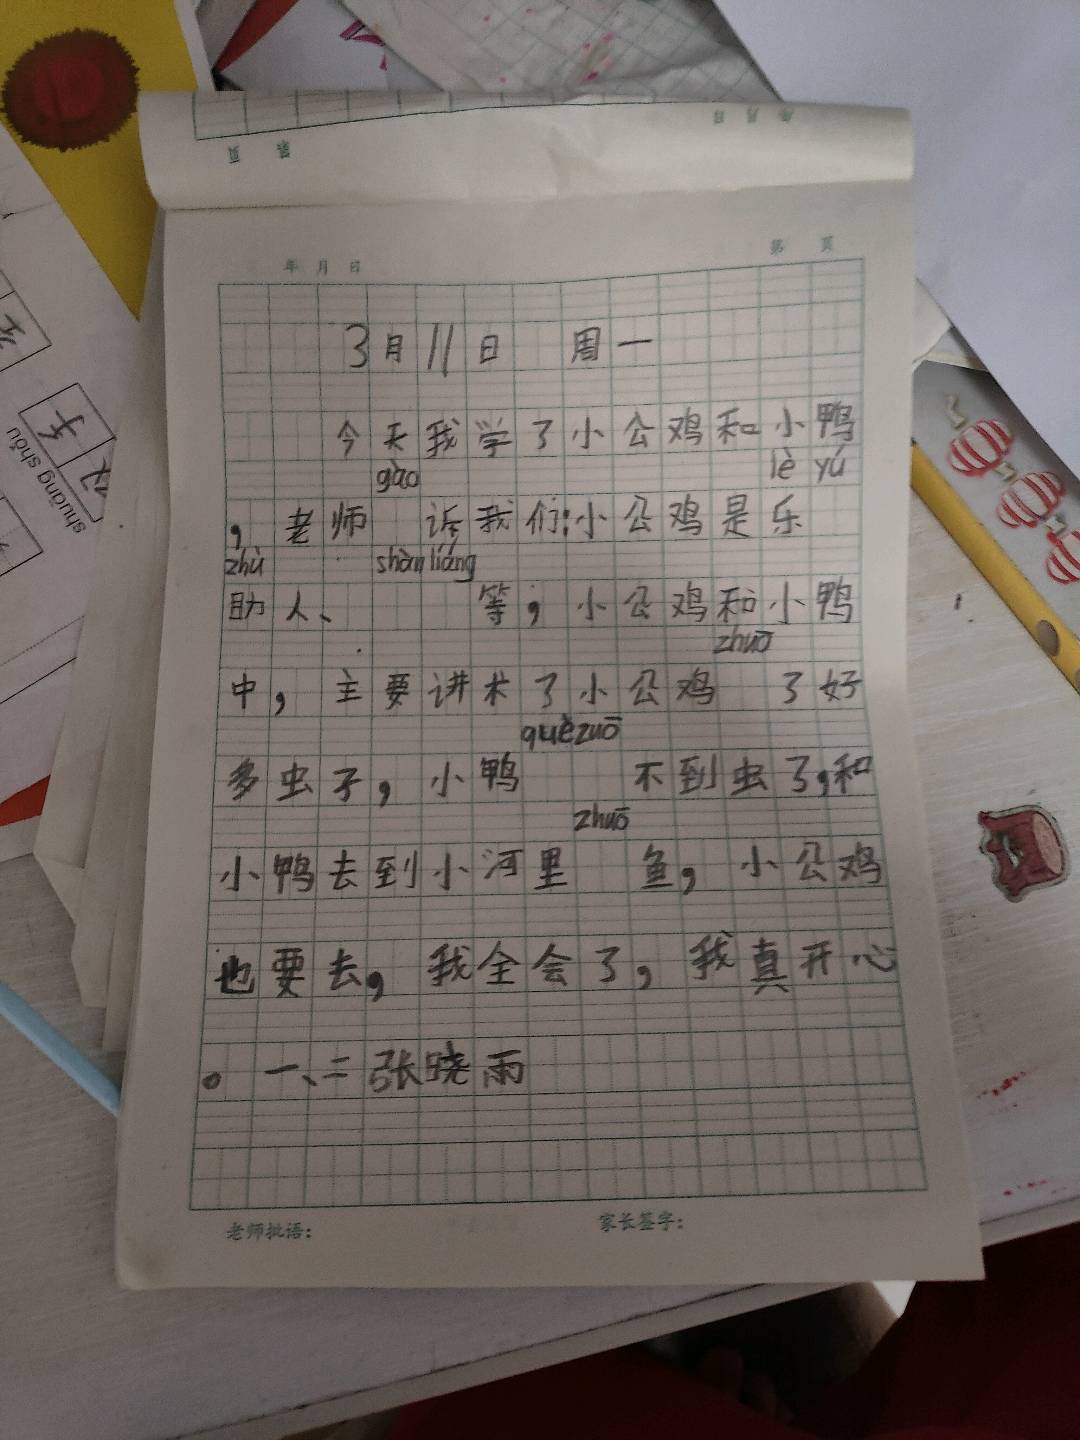 年 月 日
第 页
年 月 日
第 页
3月11日 周一
今天我学了小公鸡和小鸭
gào lè yú
，老师 诉我们:小公鸡是乐
zhù shàn liáng
助人、 等，小公鸡和小鸭
zhuō
中，主要讲术了小公鸡 了好
què zuō
多虫子，小鸭 不到虫了,和
zhuō
小鸭去到小河里 鱼，小公鸡
也要去，我全会了，我真开心
。一、二张晓雨
老师批语：
家长签字：
shuāng shǒu